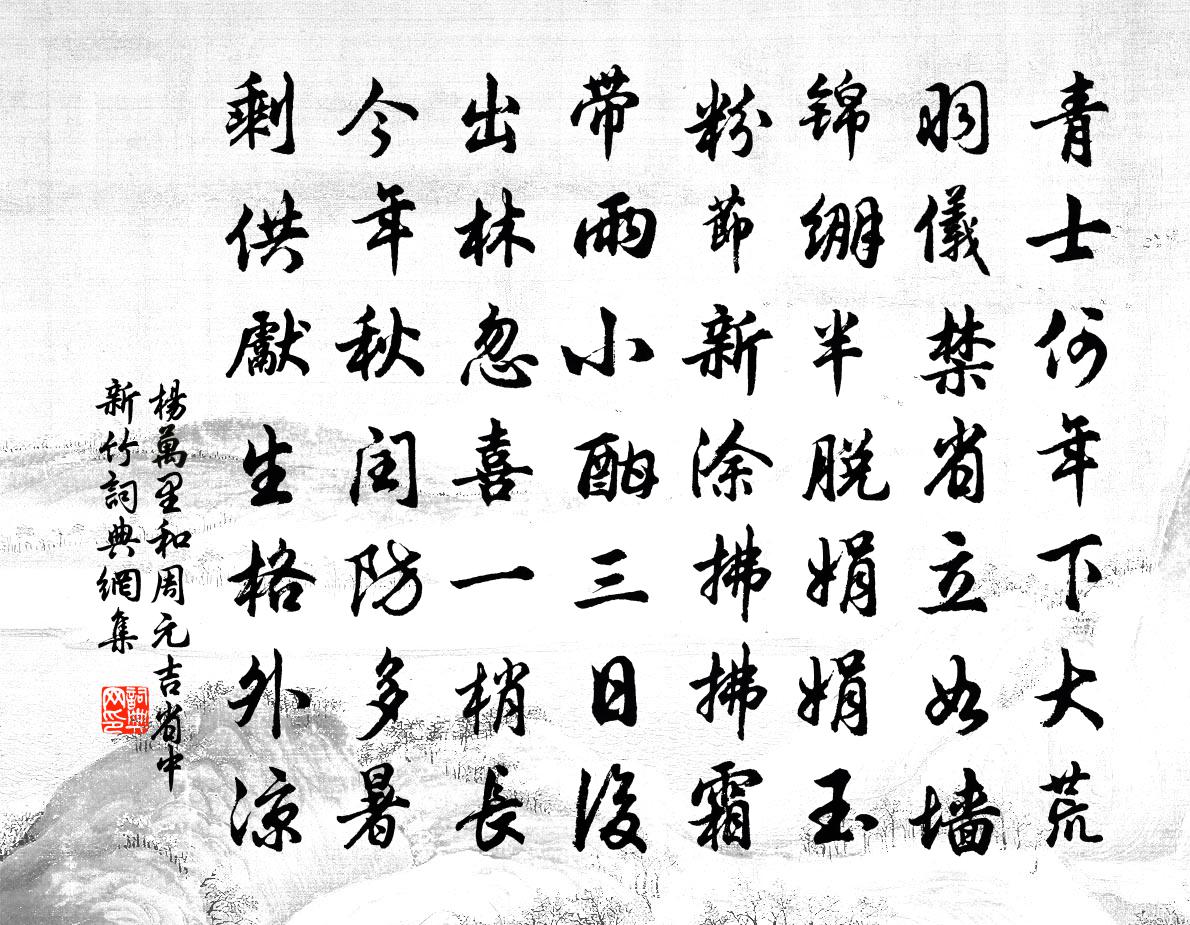 青士何年下大荒
羽儀禁省立如墙
锦绷半脱娟娟玉
粉節新涂拂拂霜
带雨小酣三日後
出林忽喜一梢長
今年秋闰防多暑
剩供獻生格外涼
楊萬里和周元吉省中
新竹詞典網集
詞典
网印